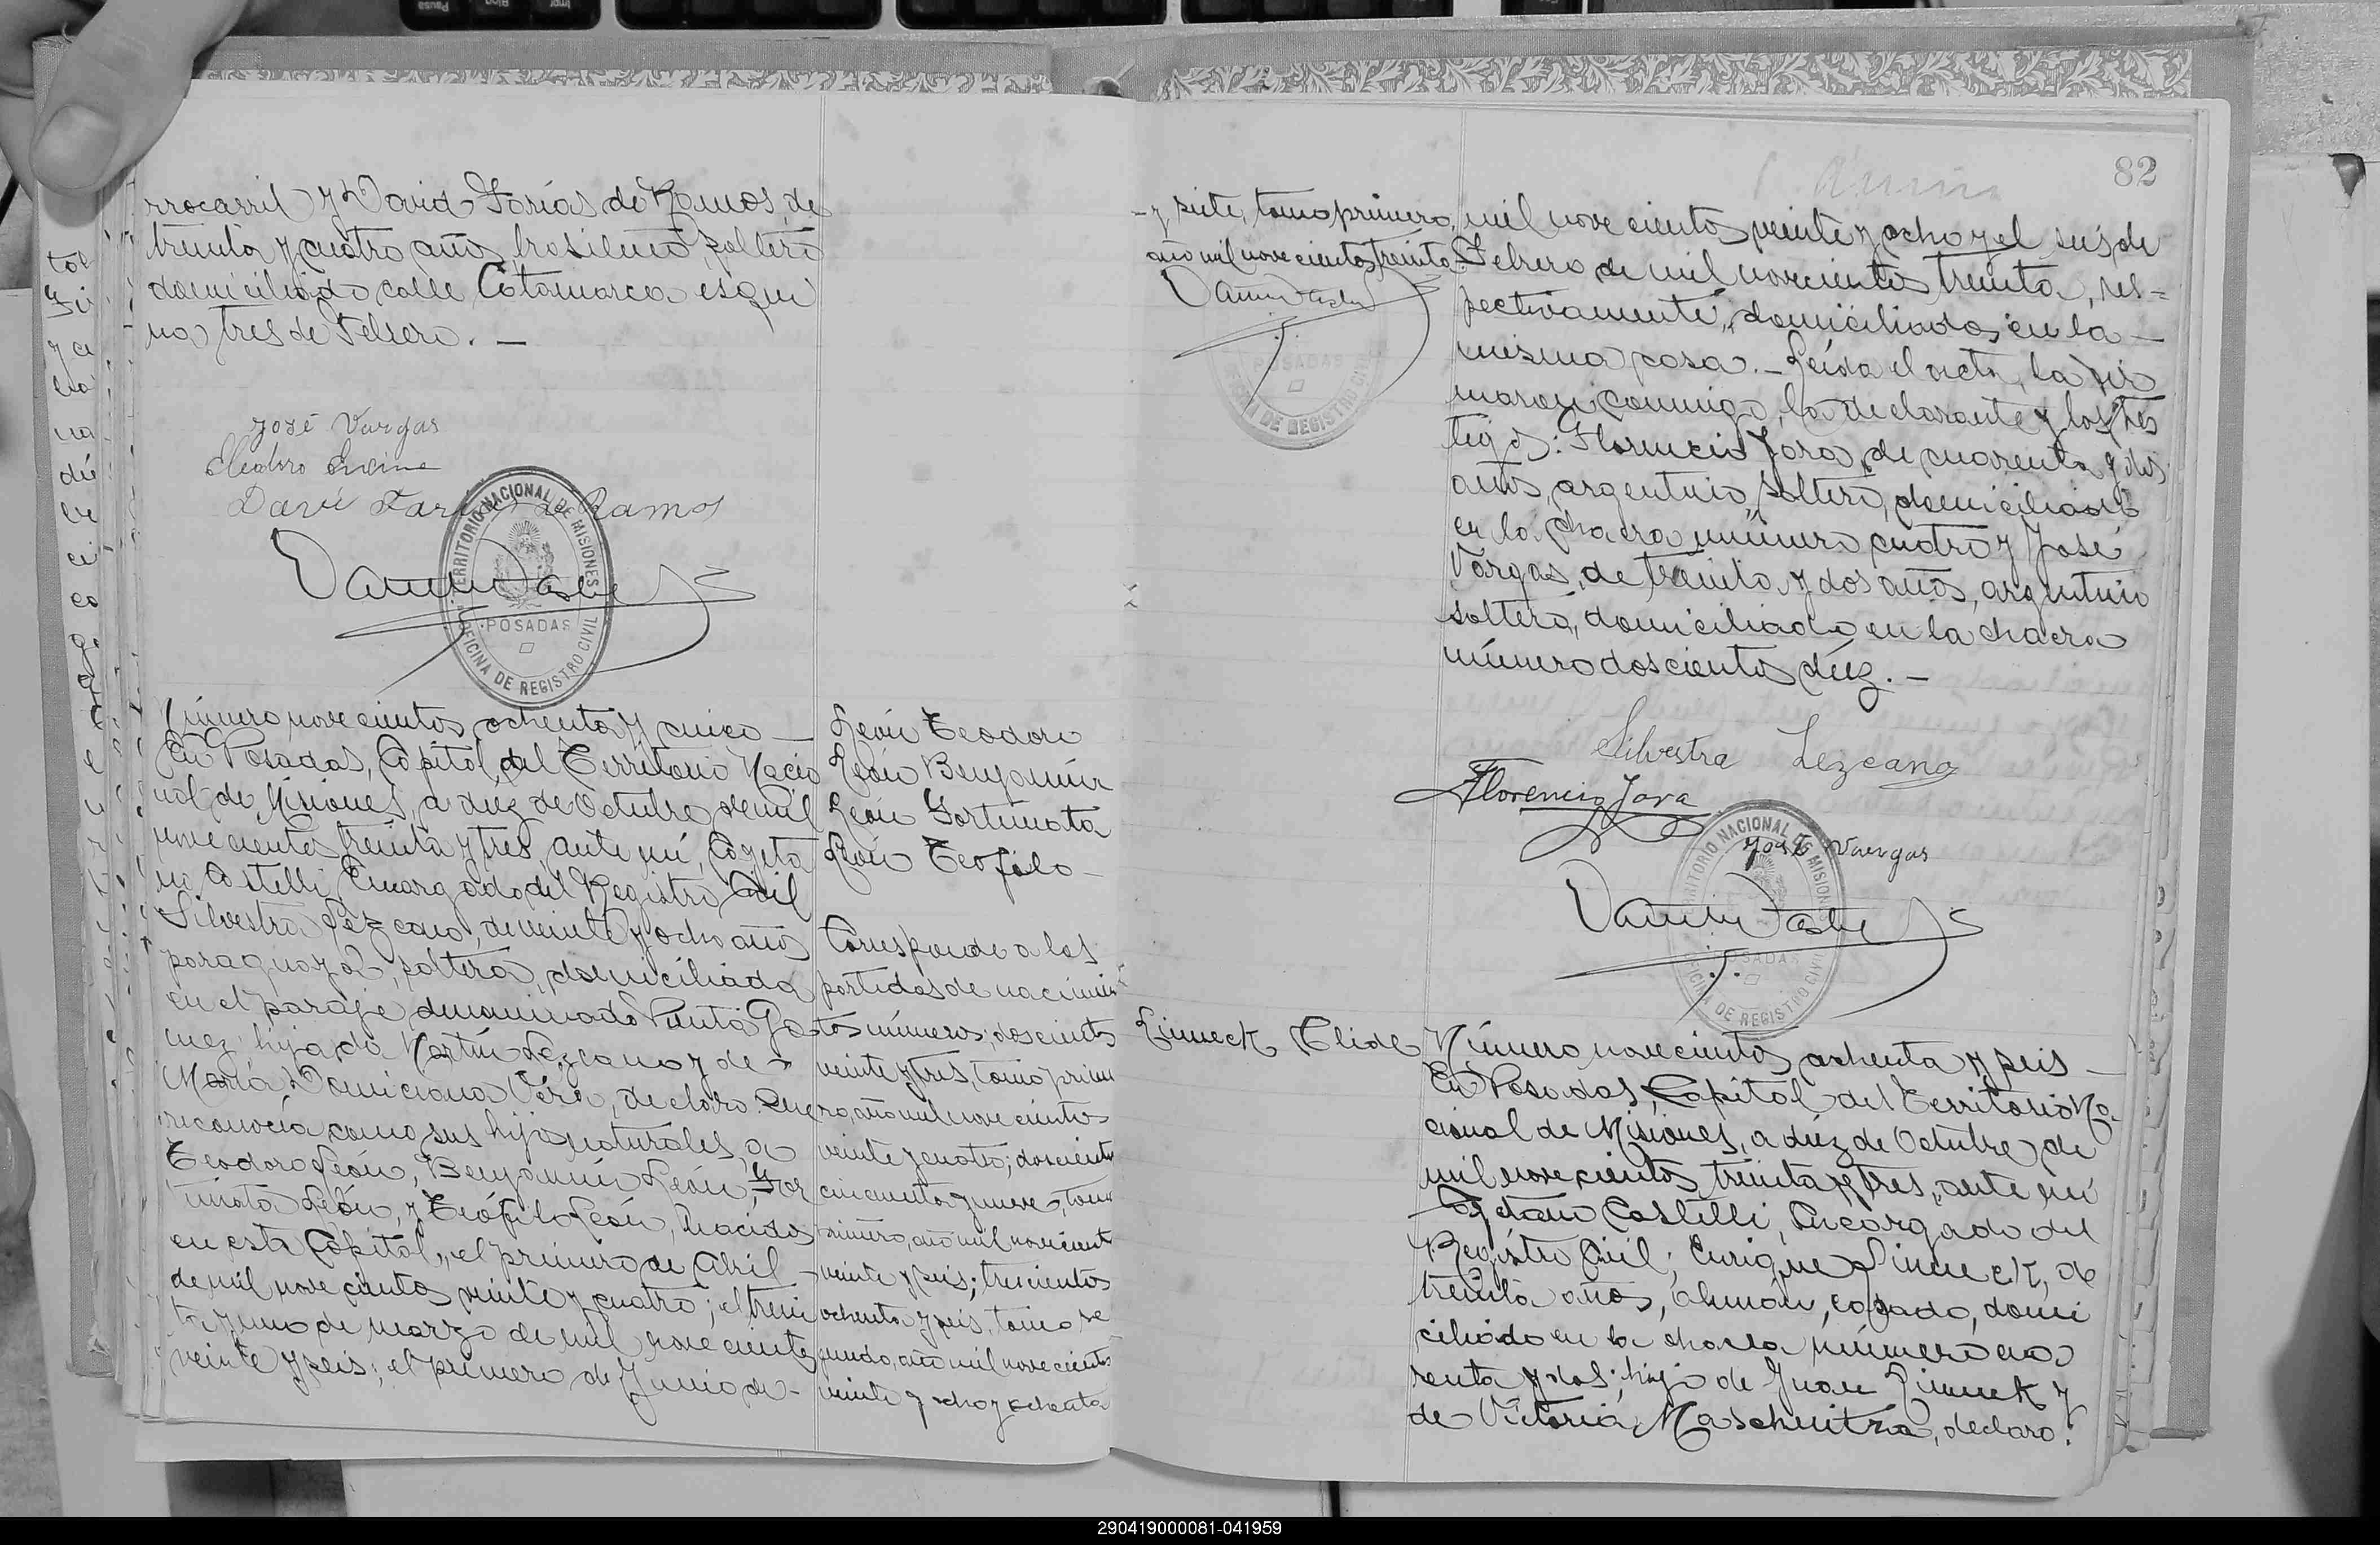 rrocarril y David Farías de Ramos, de
treinta y cuatro años, brasilero, soltero
domiciliado calle Catamarca esqui
na tres de Febrero. —
José Vargas
Eleodoro
Davi Farias de Ramos
TERRITORIO NACIONAL DE MISIONES
POSADAS
OFICINA DE REGISTRO CIVIL
Número novecientos ochenta y cinco —
En Posadas, Capital del Territorio Nacio
nal de Misiones, a diez de Octubre de mil
novecientos treinta y tres, ante mí, Cayeta
no Castelli Encargado del Registro Civil
Silvestra Lezcano, de veinte y ocho años
paraguaya, soltera, domiciliada
en el paraje denominado Punta Go
mez, hija de Martín Lezcano y de
María Domiciana Vera, declaro: Que
reconocía como sus hijos naturales, a
Teodoro León, Benjamín León, For
tunata León, y Teófilo León, nacidos
en esta Capital, el primero de Abril
de mil novecientos veinte y cuatro; el trein
ta y uno de marzo de mil novecientos
veinte y seis; el primero de Junio de-
León Teodoro
León Benjamín
León Fortunata
León Teofilo-
Corresponde a las
partidas de nacimien
tos números; doscientos
veinte y tres, tomo prime
ro, año mil novecientos
veinte y cuatro; doscientos
cincuenta y nueve, tomo
primero, año mil novecientos
veinte y seis; trescientos
ochenta y seis, tomo se
gundo, año mil novecientos
veinte y ocho y ochenta
82
-y siete, tomo primero,
año mil novecientos treinta.
POSADAS
OFICINA DE REGISTRO CIVIL
mil novecientos veinte y ocho y el seis de
Febrero de mil novecientos treinta, res-
pectivamente, domiciliados en la —
misma casa. — Leída el acta, la fir
maron conmigo, la declarante y los tes
tigos: Florencio Jara, de cuarenta y dos
años, argentino, soltero, domiciliado
en la chacra número cuatro y José
Vargas, de treinta y dos años, argentino
soltero, domiciliado en la chacra
número doscientos diez. —
Silvestra Lezcano
Florencio Jara
José Vargas
TERRITORIO NACIONAL DE MISIONES
POSADAS
OFICINA DE REGISTRO CIVIL
Limeck Elide
Número novecientos ochenta y seis —
En Posadas, Capital del Territorio Na
cional de Misiones, a diez de Octubre de
mil novecientos treinta y tres, ante mí
Cayetano Castelli, Encargado del
Registro Civil; Enrique Limeck, de
treinta años, alemán, casado, domi
ciliado en la chacra número cua
renta y dos; hijo de Juan Limeck y
de Victoria Maschnitzka, declaro:
290419000081-041959